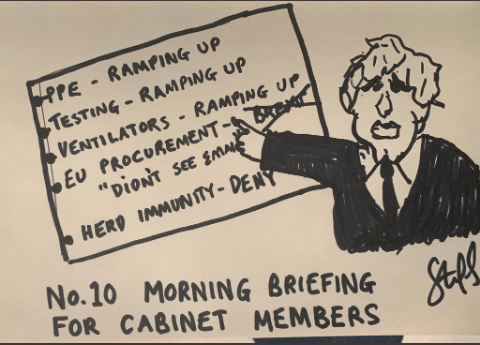 PPE - RAMPING UP
TESTING - RAMPING UP
VENTILATORS - RAMPING UP
EU PROCUREMENT - BREXIT
"DIDN'T SEE EMAIL
HERD IMMUNITY - DENY
No.10 MORNING BRIEFING
FOR CABINET MEMBERS